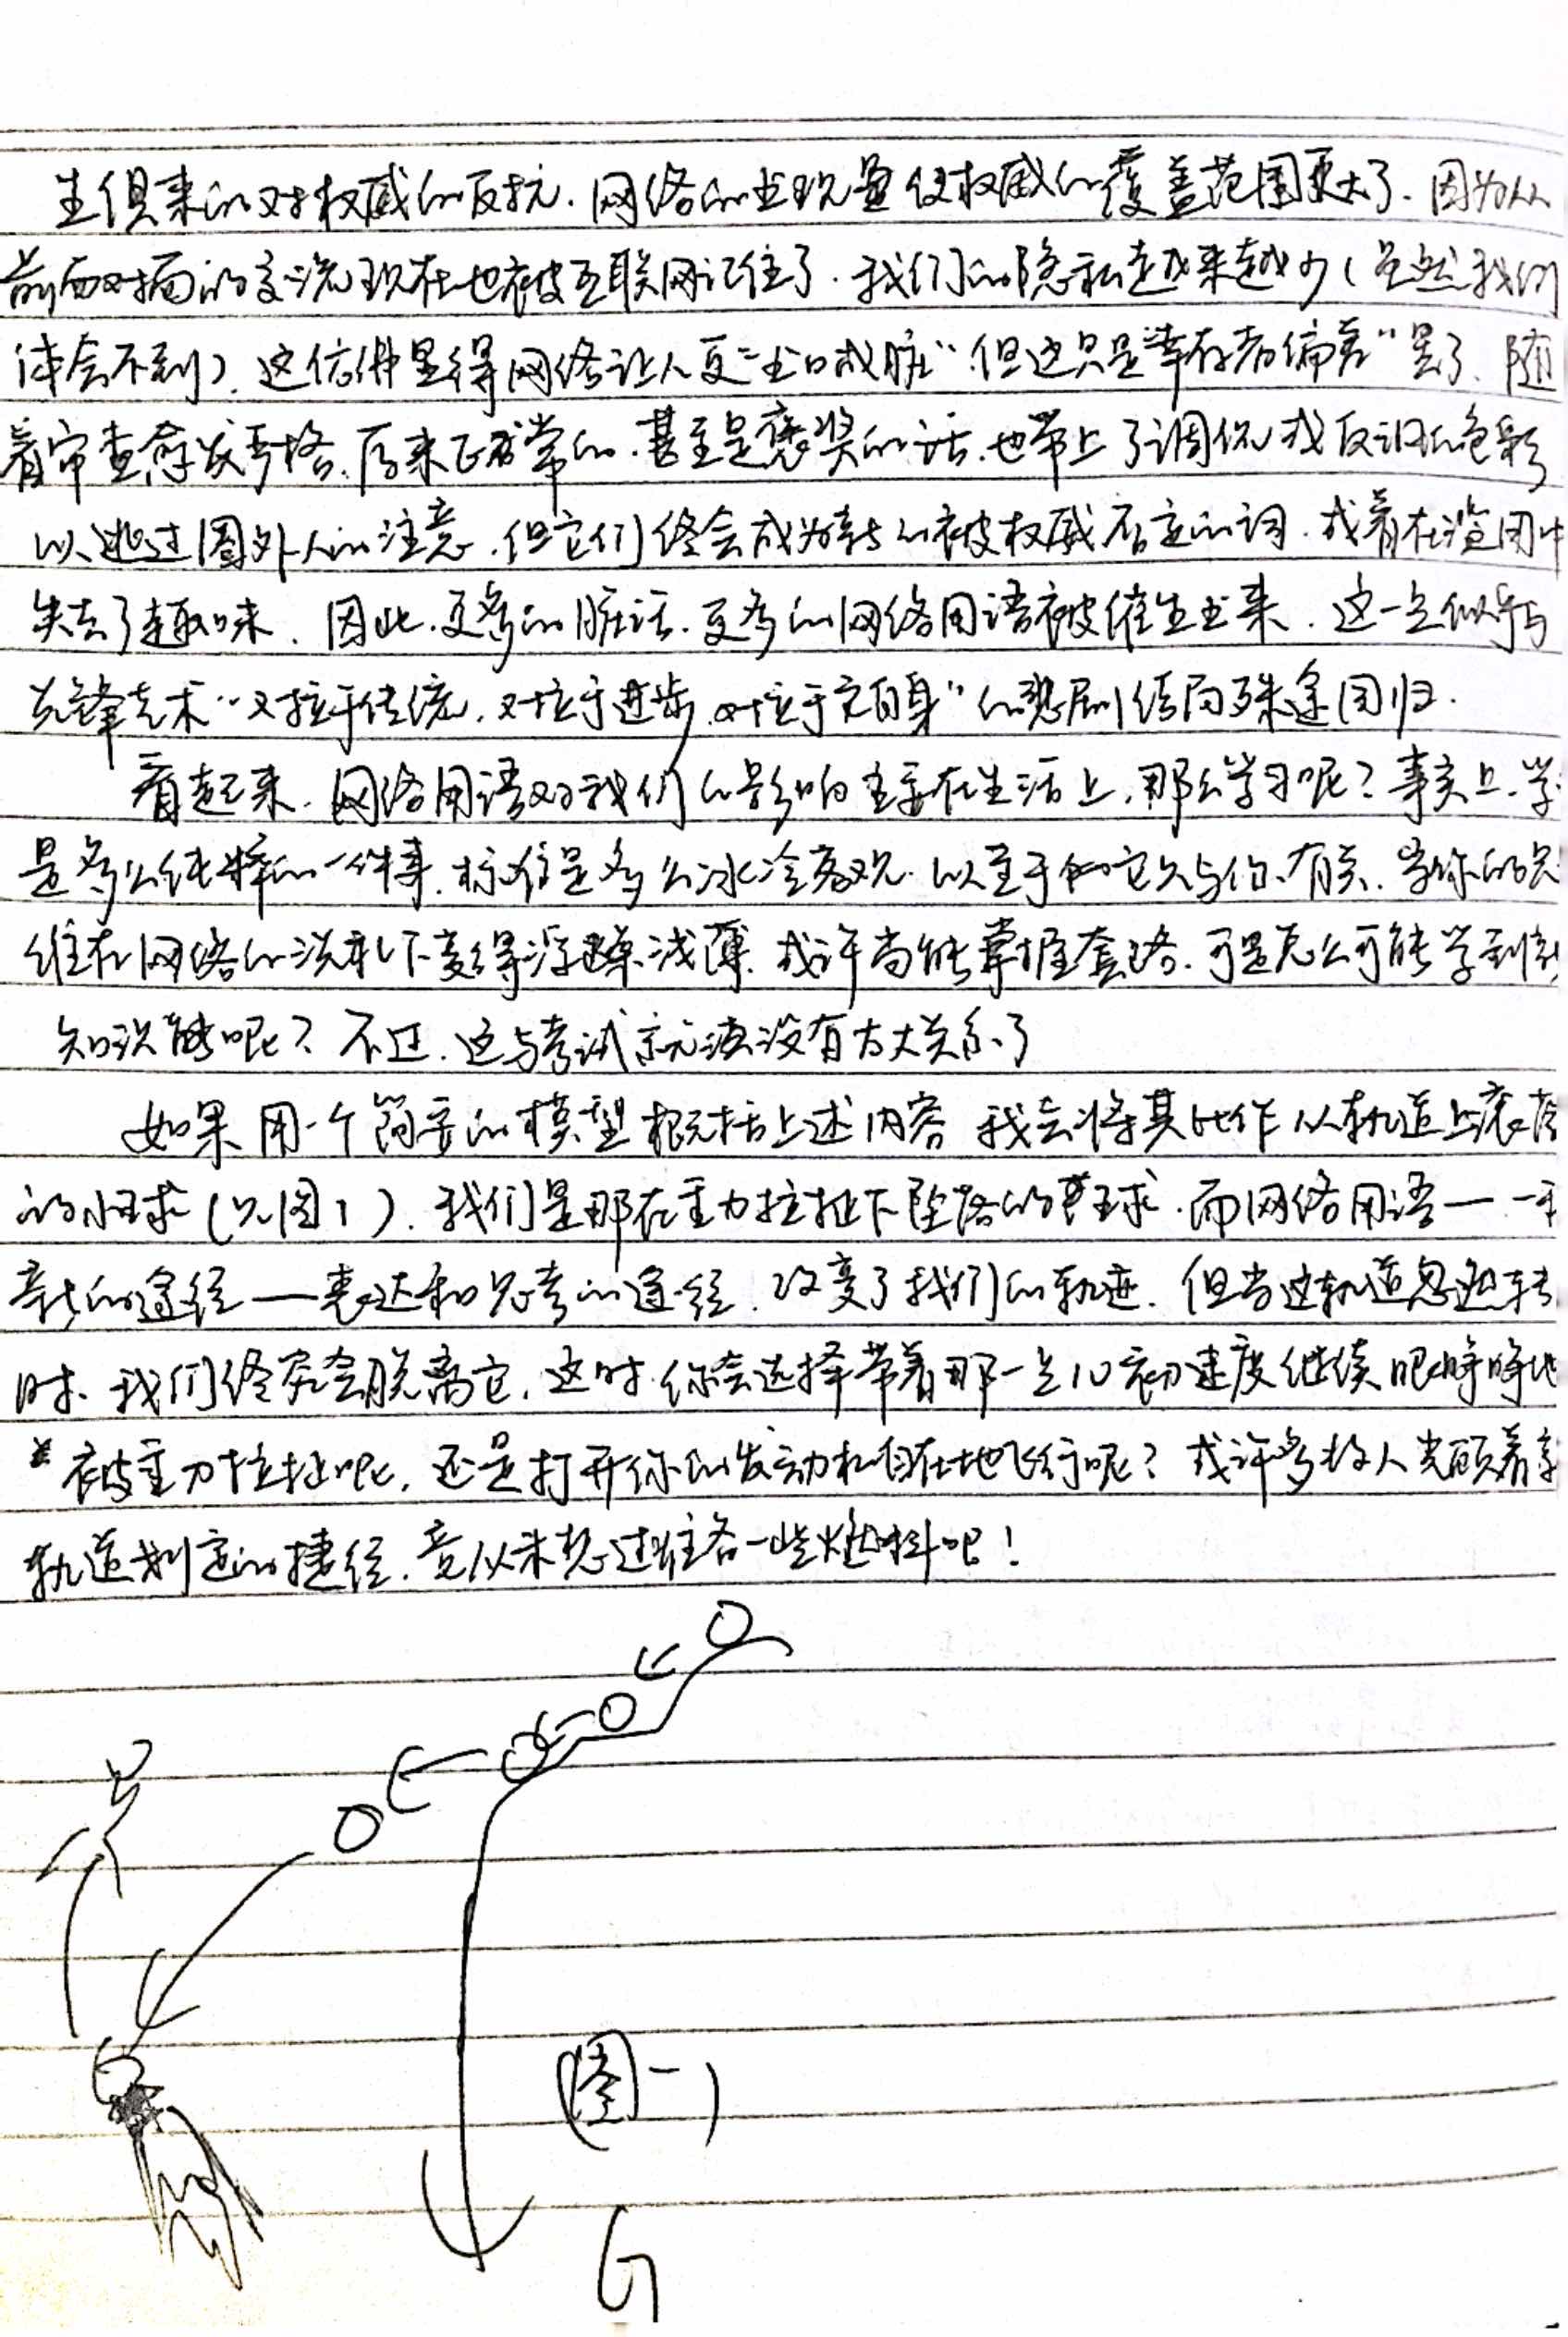 生俱来的对权威的反抗.网络的出现虽使权威的覆盖范围更大了.因为从
前面对面的交流现在也被互联网记住了.我们的隐私越来越少(虽然我们
体会不到).这仿佛显得网络让人更"出口成脏".但这只是"幸存者偏差"罢了.随
着审查愈发严格.原来正常的.甚至是褒奖的话.也带上了调侃或反讽的色彩
以逃过圈外人的注意.但它们终会成为新的被权威否定的词.或着在滥用中
失去了趣味.因此.更多的脏话.更多的网络用语被催生出来.这一点似乎与
先锋艺术"对抗于传统,对抗于进步,对抗于自身"的悲剧结局殊途同归.
看起来.网络用语对我们的影响主要在生活上,那么学习呢?事实上.学
是多么纯粹的一件事.标准是多么冰冷客观.以至于和它只与你有关.当你的思
维在网络的洗礼下变得浮躁浅薄.或许尚能掌握套路.可是怎么可能学到
知识 呢?不过.这与考试就没有太大关系了
如果用一个简要的模型概括上述内容 我会将其比作从轨道上滚落
的小球(见图1).我们是那在重力拉扯下坠落的 球.而网络用语—
新的途径——表达和思考的途径.改变了我们的轨迹.但当这轨道忽然转
时.我们终究会脱离它.这时.你会选择带着那一点儿初速度继续眼睁睁地
被重力拉扯呢.还是打开你的发动机自在地飞行呢?或许多数人光顾着
轨道划定的捷径.竟从未想过准备一些燃料吧!
(图一)
G